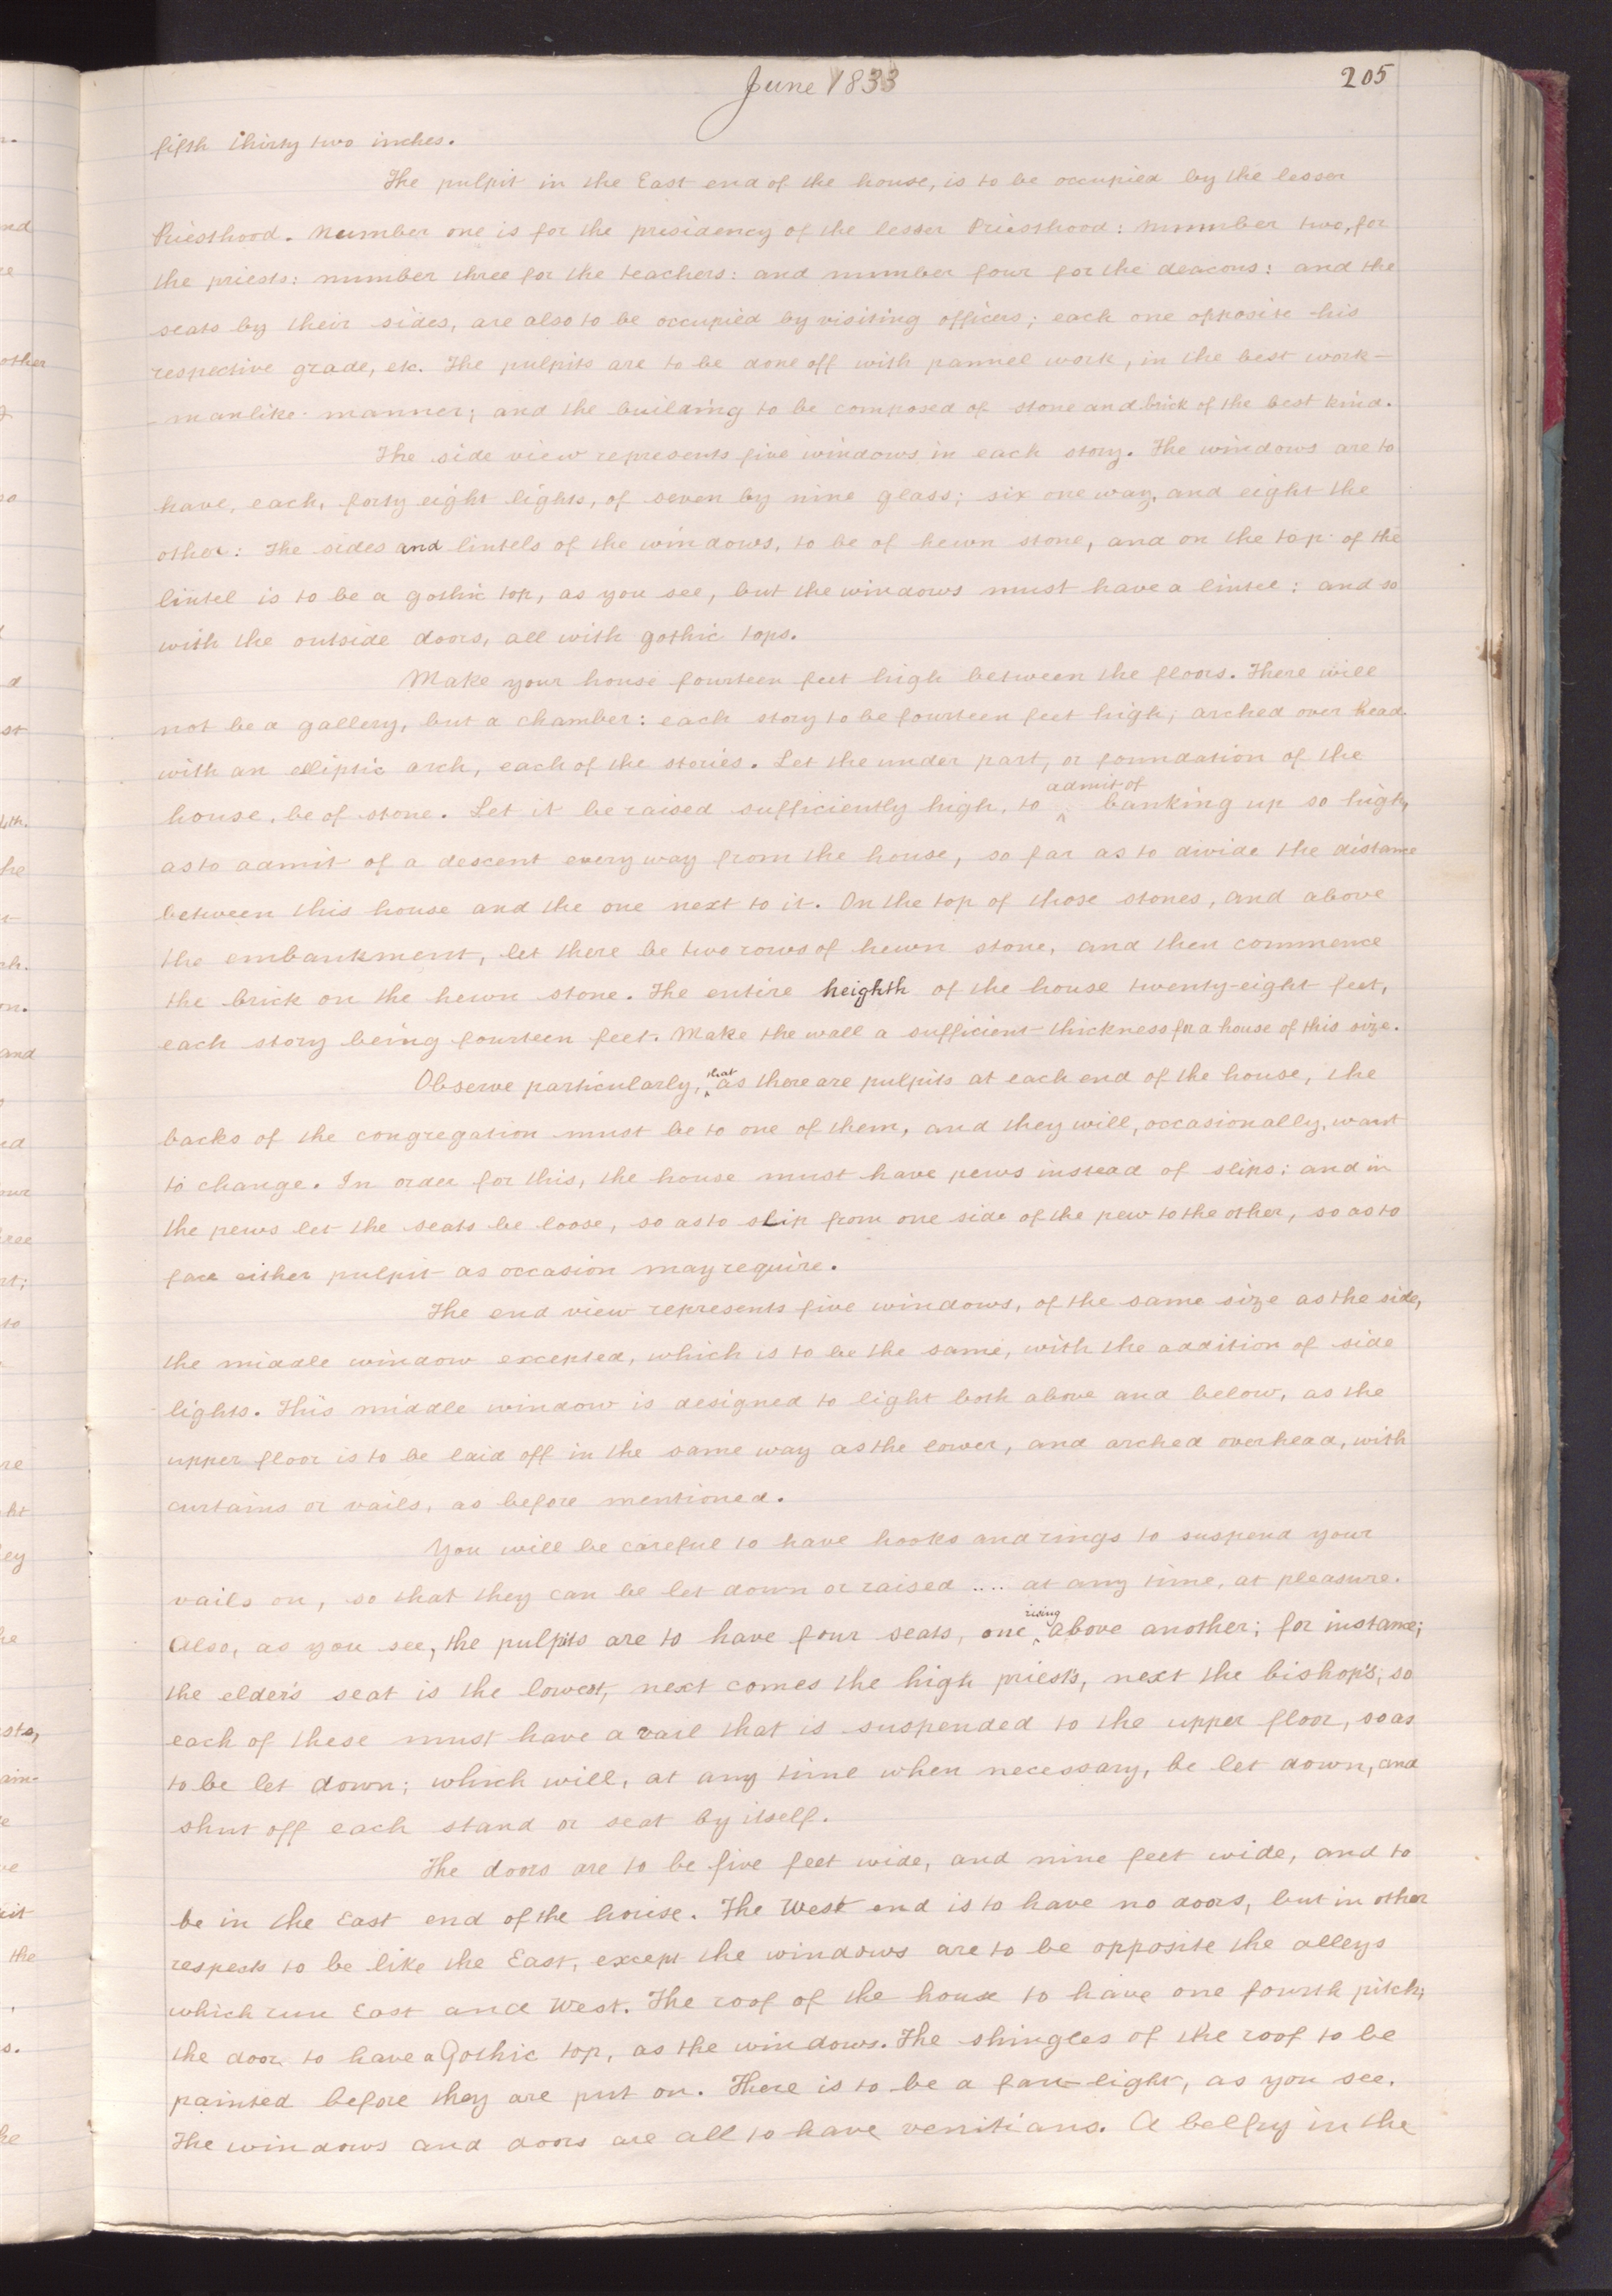 June 1833
205
fifth thirty two inches.
The pulpit in the East end of the house, is to be occupied by the lesser
Priesthood. Number one is for the presidency of the lesser Priesthood: number two, for
the priests: number three for the teachers: and number four for the deacons: and the
seats by their sides, are also to be occupied by visiting officers; each one opposite his
respective grade, etc. The pulpits are to be done off with pannel work, in the best work-
-manlike manner; and the building to be composed of stone and brick of the best kind.
The side view represents five windows in each story. The windows are to
have, each, forty eight lights, of seven by nine glass; six one way, and eight the
other: The sides and lintels of the windows, to be of hewn stone, and on the top of the
lintel is to be a gothic top, as you see, but the windows must have a lintel: and so
with the outside doors, all with gothic tops.
Make your house fourteen feet high between the floors. There will
not be a gallery, but a chamber: each story to be fourteen feet high; arched over head
with an elliptic arch, each of the stories. Let the under part, or foundation of the
house, be of stone. Let it be raised sufficiently high, to ^admit of banking up so high,
as to admit of a descent every way from the house, so far as to divide the distance
between this house and the one next to it. On the top of those stones, and above
the embankment, let there be two rows of hewn stone, and then commence
the brick on the hewn stone. The entire heighth of the house twenty-eight feet,
each story being fourteen feet. Make the wall a sufficient thickness for a house of this size.
Observe particularly, ^that as there are pulpits at each end of the house, the
backs of the congregation must be to one of them, and they will, occasionally, want
to change. In order for this, the house must have pews instead of slips; and in
the pews let the seats be loose, so as to slip from one side of the pew to the other, so as to
face either pulpit as occasion may require.
The end view represents five windows, of the same size as the side,
the middle window excepted, which is to be the same, with the addition of side
lights. This middle window is designed to light both above and below, as the
upper floor is to be laid off in the same way as the lower, and arched overhead, with
curtains or vails, as before mentioned.
You will be careful to have hooks and rings to suspend your
vails on, so that they can be let down or raised .... at any time, at pleasure.
Also, as you see, the pulpits are to have four seats, one ^rising above another; for instance;
the elder's seat is the lowest, next comes the high priest's, next the bishop's; so
each of these must have a vail that is suspended to the upper floor, so as
to be let down; which will, at any time when necessary, be let down, and
shut off each stand or seat by itself.
The doors are to be five feet wide, and nine feet wide, and to
be in the East end of the house. The West end is to have no doors, but in other
respects to be like the East, except the windows are to be opposite the alleys
which run East and West. The roof of the house to have one fourth pitch;
the door to have a Gothic top, as the windows. The shingles of the roof to be
painted before they are put on. There is to be a fan-light, as you see.
The windows and doors are all to have venitians. A belfry in the